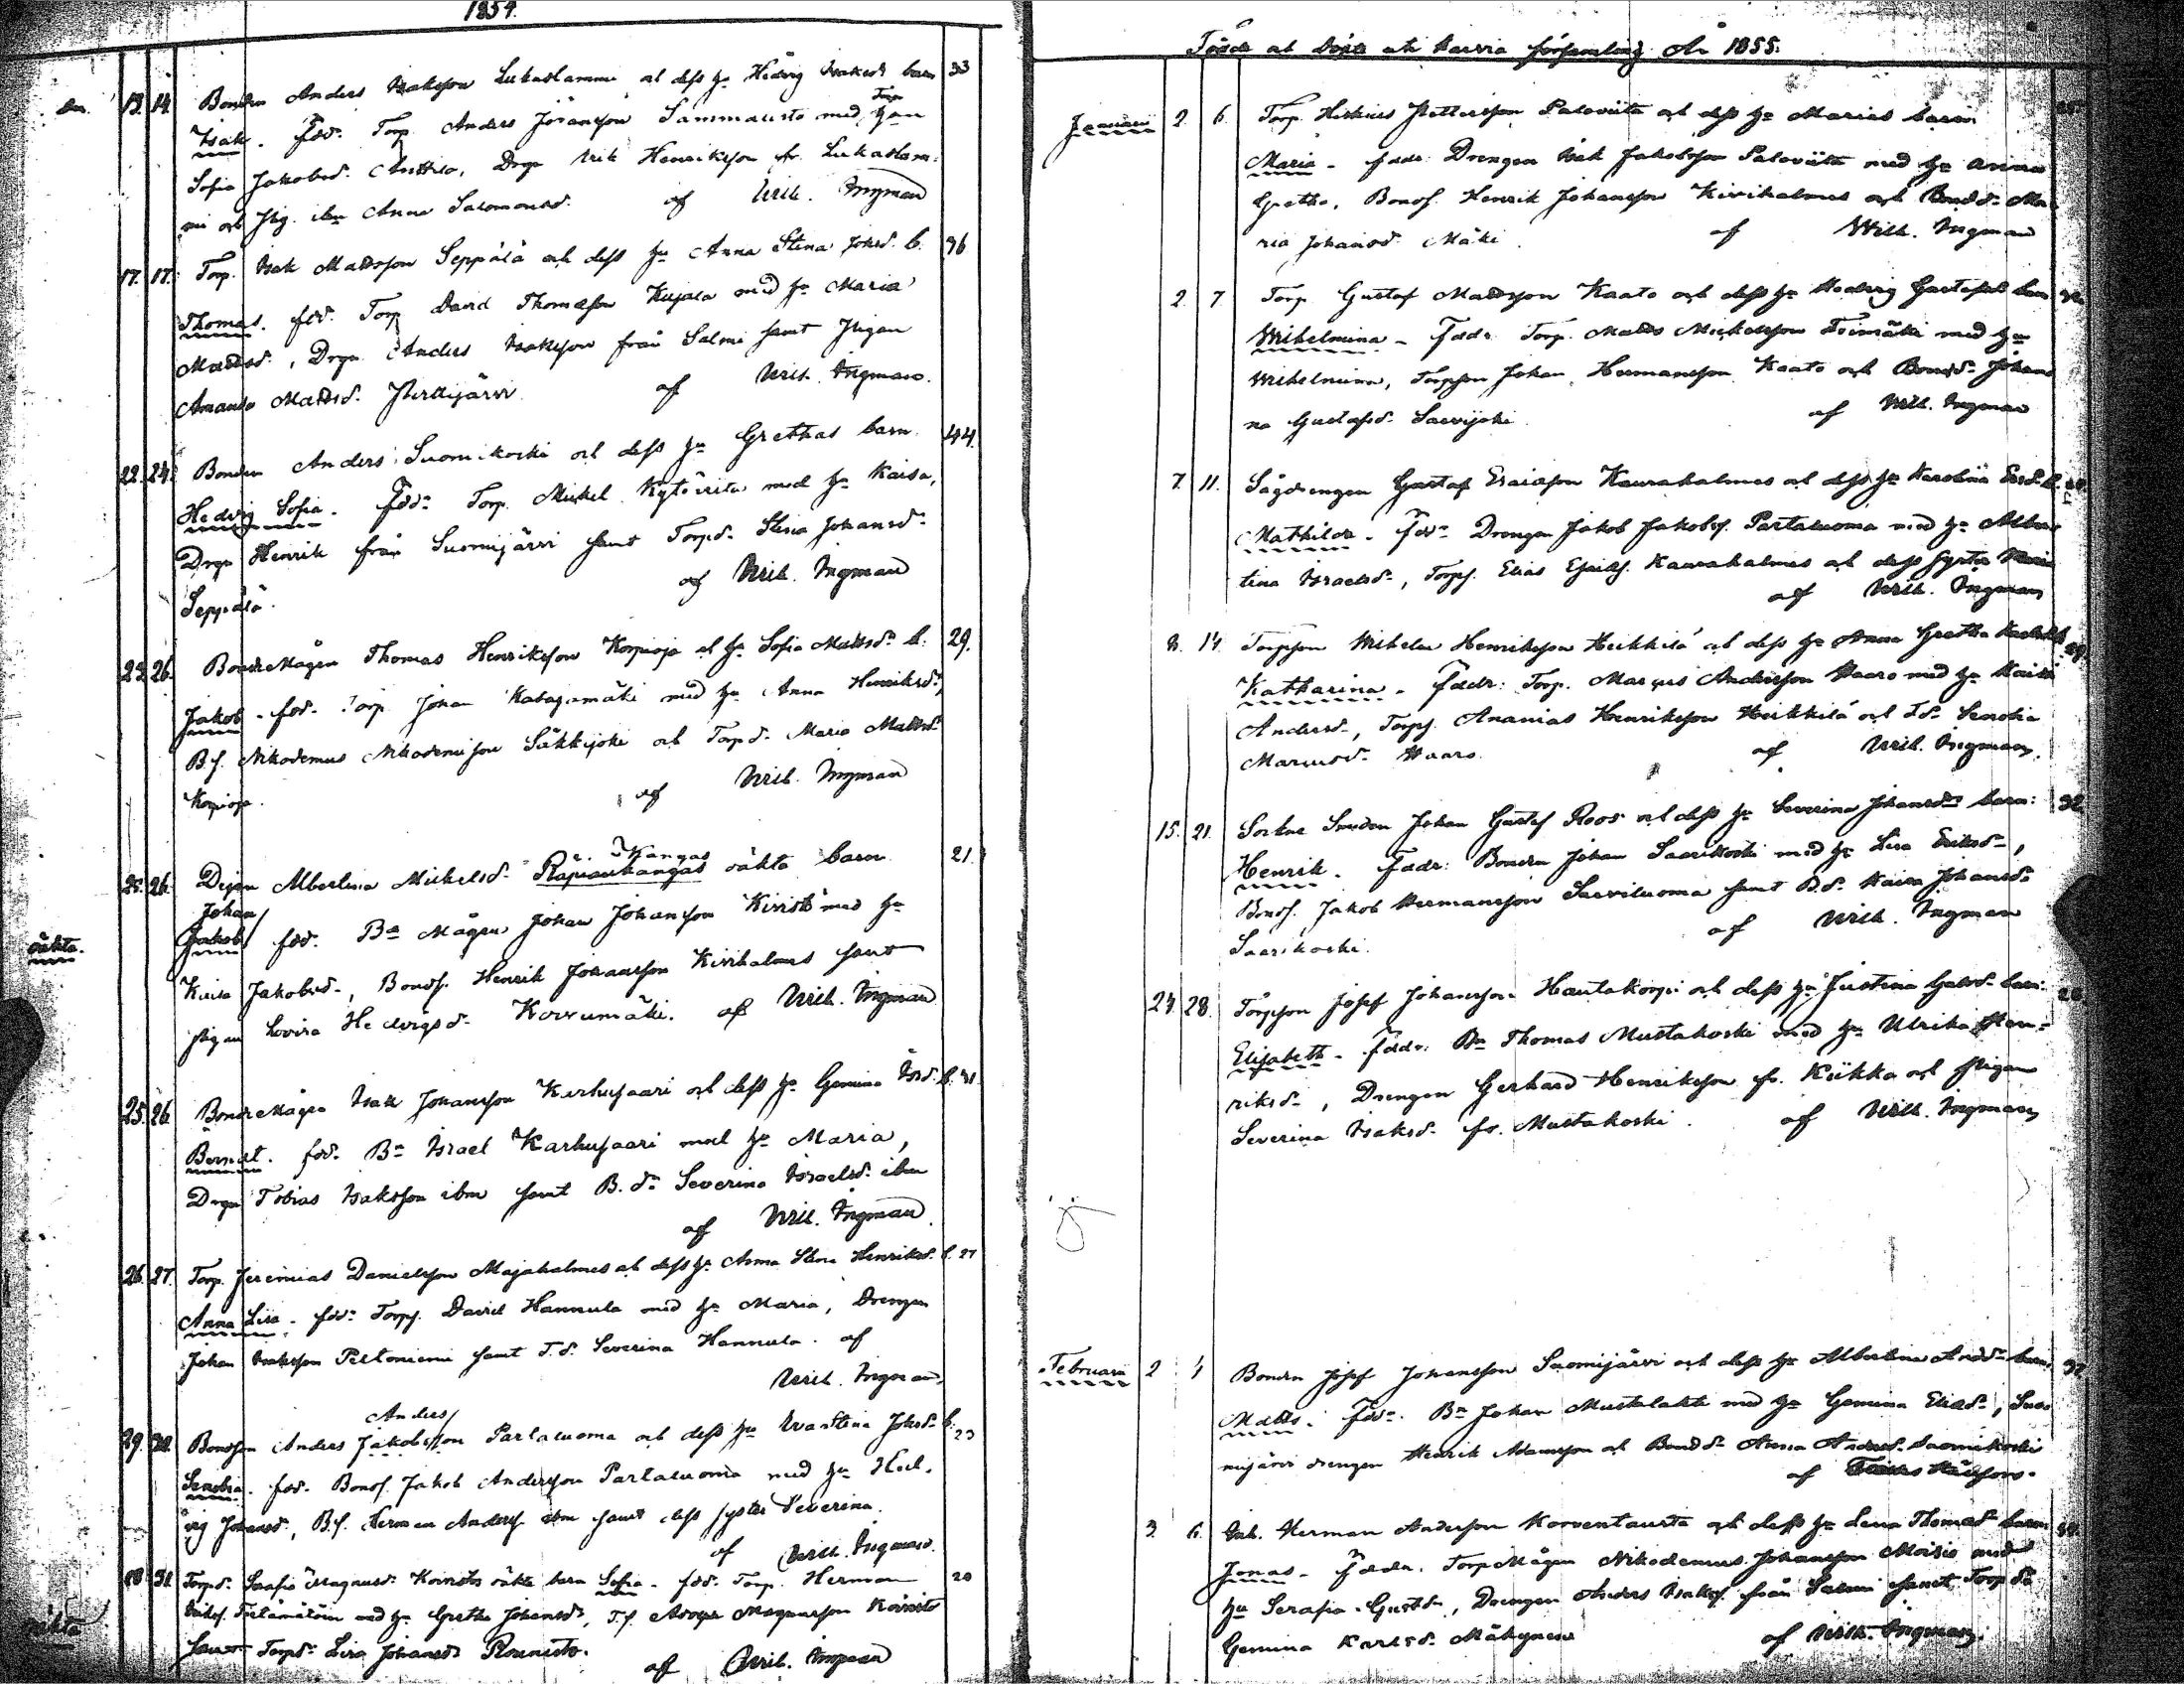 1854.
Dec. 13. 14. Bonden Anders Isaksson Lukaslammi och dess hu Hedvig Isaksds barn 33
Isak. fdd. Torp. Anders Johansson Sammausto med Torp hun
Sofia Jakobsd. Anttila, Drgn Erik Henriksson fr. Lukaslam-
mi och Pig. ibm Anna Salomonsd. af Wilh. Ingman
17. 17. Torp. Isak Mattsson Seppälä och dess hu Anna Stina Johsd. b. 36
Thomas. fdd. Torp David Thomasson Kujala med hu Maria
Mattsd., Drgn Anders Isaksson från Salmi samt Pigan
Amanda Mattsd. Perttijärvi af Wilh. Ingman.
22. 24. Bonden Anders Suomikoski och dess hu Grethas barn 44.
Hedvig Sofia. fdd. Torp. Mickel Kytöviita med hu Kaisa,
Drgn Henrik från Suomijärvi samt Torpd. Stina Johansd.
Seppälä. af Wilh. Ingman
23. 26. BondeMågen Thomas Henriksson Korpioja och hu Sofia Mattsd. b. 29.
Jakob. fdd. Torp Johan Katajamäki med hu Anna Henriksd.,
B.s. Nikodemus Nikodemisson Säkkijoki och Torpd. Maria Mattsd.
Korpioja. af Wilh. Ingman
25. 26. Dejan Albertina Mickelsd. Rapiaukangas r. Kangas oäkta barn 21.
oäkta. Johan
Jakob/ fdd. Bn Mågen Johan Johansson Kivistö med hu
Kaisa Jakobsd., Bonds. Henrik Johansson Kivihalmes samt
pigan Lovisa Hedvigsd. Korvumäki. af Wilh. Ingman
25. 26. BondeMågen Isak Johansson Karhusaari och dess hu Gemina Isrd. b. 31.
Berndt. fdd. Bn Israel Karhusaari med hu Maria,
Drgn Tobias Isaksson ibm samt B.d. Severina Israelsd. ibm
af Wilh. Ingman.
26. 27. Torp. Jeremias Danielsson Majahalmes och dess hu Anna Stina Henriksd. b. 27
Anna Lisa. fdd. Torps. David Hannula med hu Maria, Drengen
Johan Isaksson Peltoniemi samt T.d. Severina Hannula. af
Wilh. Ingman.
Anders/
29. 30. Bondson Anders Jakobsson Partaluoma och dess hu Eva Stina Johsd. b. 23
Senobia. fdd. Bonds. Jakob Andersson Partaluoma med hu Hed-
vig Johansd., B.s. Herman Anderss. ibm samt dess syster Severina.
af Wilh. Ingman.
31. Torpd. Serafia Magnusd. Koivisto oäkta barn Sofia. fdd. Torp. Herman 20
oäkta med hu Gretha Johansd., T.s. Adolph Magnusson Koivisto
samt Torpd. Lisa Johansd. Rounisto. af Wilh. Ingman
Födde och Döpte uti Karvia församling År 1855.
Januari 2. 6. Torp. Hiskias Pettersson Paloviita och dess hu Marias barn
Maria. faddr: Drengen Isak Jakobsson Paloviita med hu Anna
Gretha, Bonds. Henrik Johansson Kivihalmes och Bondd. Ma-
ria Johansd. Mäki. af Wilh. Ingman
2. 7. Torp Gustaf Mattsson Kaato och dess hu Hedvig Gustafsd. barn
Wilhelmina. Faddr. Torp. Matts Mickelsson Toimäki med hu
Wilhelmina, Torpson Johan Hermansson Kaato och Bondd. Johan-
na Gustafsd. Sarvijoki. af Wilh. Ingman
7. 11. Sågdrengen Gustaf Esaiasson Kaurahalmes och dess hu Karolina
Mathilda. Fdd. Drengen Jakob Jakobss. Partaluoma med hu Alber-
tina Israelsd., Torps. Elias Kaurahalmes och dess syster Maria
af Wilh. Ingman
8. 14. Torpson Wilhelm Henriksson Heikkilä och dess hu Anna Gretha
Katharina. Faddr: Torp. Marcus Andersson Haaro med hu Maria
Andersd., Torps. Ananias Henriksson Heikkilä och T.d. Senobia
Marcusd. Haaro. af Wilh. Ingman.
15. 21. Sockne Smeden Johan Gustaf Roos och dess hu Severina Johansds barn: 32
Henrik. Faddr: Bonden Johan Saarikoski med hu Lisa Eriksd.,
Bonds. Jakob Hermansson Sarviluoma samt B.d. Kaisa Johansd.
Saarikoski. af Wilh. Ingman
24. 28. Torpson Josef Johansson Hautakorpi och dess hu Justina Gabrd. barn:
Elisabeth. Faddr. Bn Thomas Mustakoski med hu Ulrika Hen-
riksd., Drengen Gerhard Henriksson fr. Kiikka och Pigan
Severina Isaksd. fr. Mustakoski. af Wilh. Ingman
Februari 2 4 Bonden Josef Johansson Suomijärvi och dess hu Albertina Andd. barn 37
Matts. Fdd. Bn Johan Mustalahti med hu Gemina Eliasd., Suo-
mijärvi drengen Henrik Adamsson och Bondd. Anna Andersd. Suomikoski
af
3. 6. Inh. Herman Andersson Korventausta och dess hu Lena Thomasd. barn
Jonas. Faddr. TorpMågen Nikodemus Johansson Moisio med
hu Serafia Gustd., Drengen Anders Isakss. från Salmi samt Torpd.
Gemina Karlsd. Mäkynen af Wilh. Ingman.